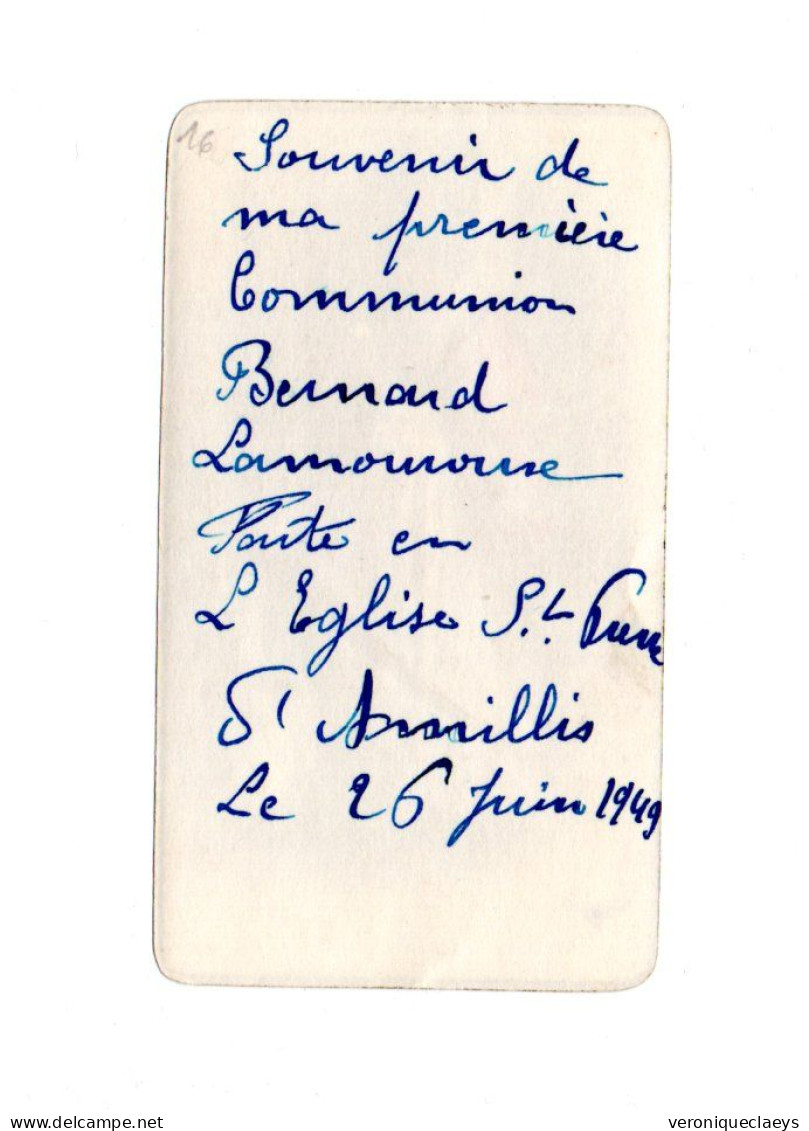 16
Souvenir de
ma première
Communion
Bernard
Lamourouse
Faite en
L'Eglise St. Pierre
d'Amillis
Le 26 Juin 1949
Delcampe.net
veroniqueclaeys